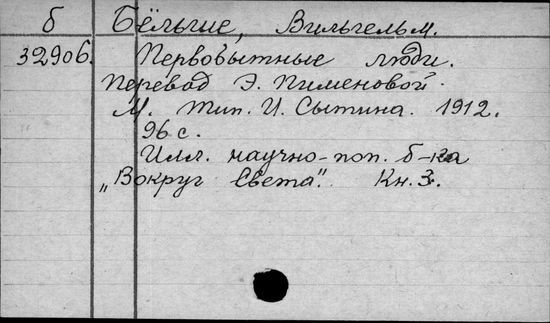 б Бёльше, Вильгельм.
32906. Первобытные люди.
Перевод Э. Пименовой.
М. тип. И. Сытина. 1912.
96 с.
Илл. научно-поп. б-ка
„Вокруг Света". Кн. 3.